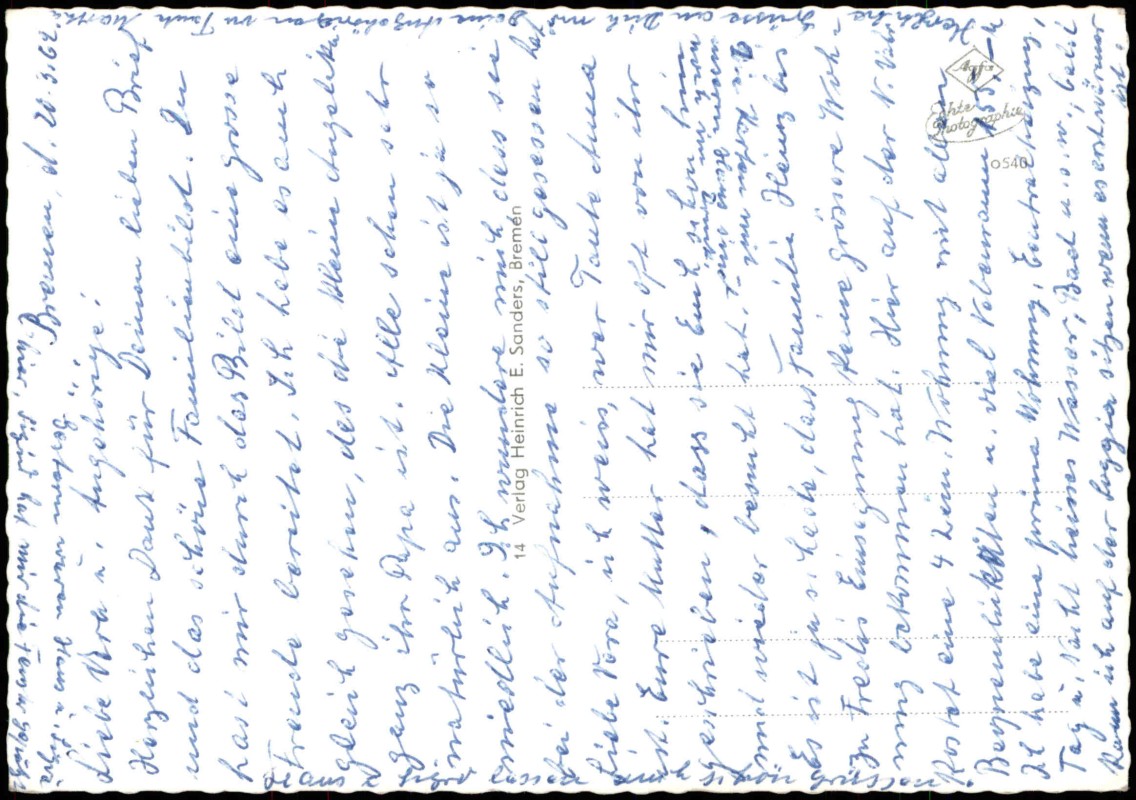 Bremen, d. 20.3.62
Liebe Vera u. Angehörige!
Herzlichen Dank für Deinen lieben Brief
und das schöne Familienbild. Du
hast mir durch das Bild eine grosse
Freude bereitet. Ich habe es auch
gleich gesehen, des die kleine Angelika
ganz ihr Papa ist. Alle sehen sehr
natürlich aus. Die Kleine ist ja so
niedlich. Ich wundere mich dass sie
bei der Aufnahme so still gesessen hat
Liebe Vera, ich weiss, wer Tante Anna
ist. Eure Mutter hat mir oft von ihr
geschrieben, dass sie Euch schon
und wieder besucht hat.
Es ist ja schade, dass Familie Heinz bis
zu Fredis Einsegnung keine grössere Woh-
nung bekommen hat. Hier auf der N. Vahr
kostet eine 4 Zim. Wohnung mit allen
Bequemlichkeiten u. viel Nebenraum 155.-
Ich habe eine prima Wohnung, Zentralheizung,
Tag u. Nacht heisses Wasser, Bad u.s.w., bald
kann ich auf der Loggia sitzen wenn es erst wärmer
ist.
Herzliche Grüsse an Dich und
Deine Angehörigen von Tante
14 Verlag Heinrich E. Sanders, Bremen
Agfa
Echte
Photographie
0540